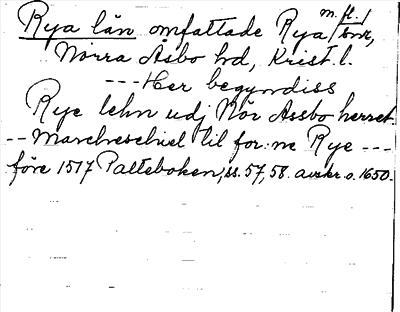 Rya län omfattade Rya m. fl. snr,
Norra Åsbo hd, Krist. l.
--- Her begyndiss
Rye lehn udj Nör Assbo herret.
-- Marcheschiel til for:ne Rye ---
före 1517 Palteboken, ss. 57, 58. avskr. o. 1650.